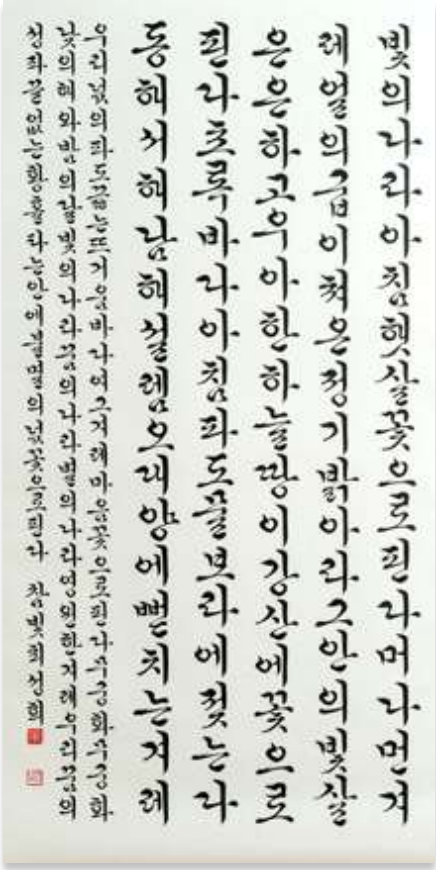 빛의나라아침햇살꽃으로핀다머나먼겨
레얼의굽이쳐온정기밝아라그안의빛살
은은하고우아한하늘땅이강산에꽃으로
핀다초록바다아침파도물보라에젖는다
동해서해남해설렘오대양에뻗치는겨레
우리넋의파도끓는뜨거운바다의그겨레마음꽃으로핀다무궁화무궁화
낮의해와밤의달빛의나라꿈의나라별의나라영원한겨레우리꿈의
성좌끝없는황홀타는안에불멸의넋꽃으로핀다 참빛최성희